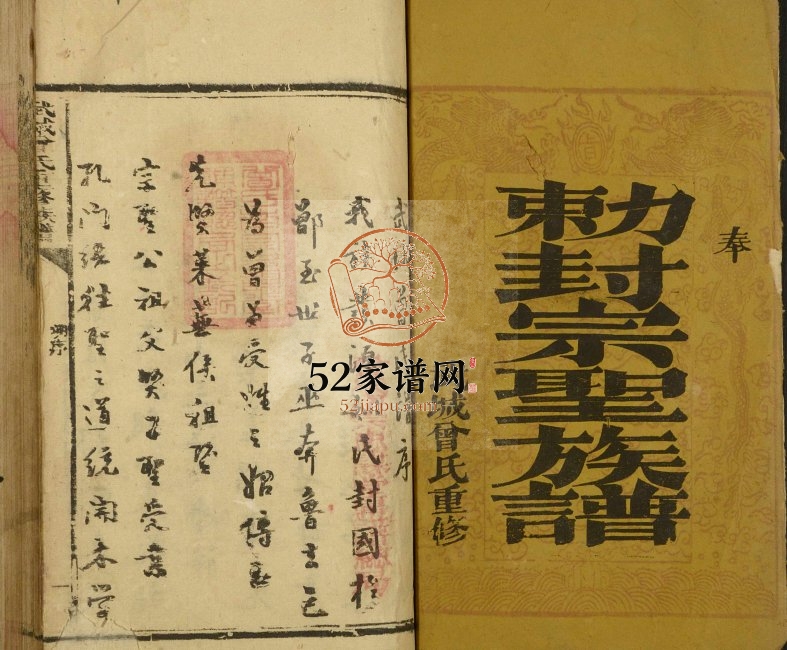 奉
勅封宗聖族譜
城曾氏重修
序
我氏封國於
鄫至世子巫奔魯去邑
為曾受姓之始傳至
先賢萊蕪侯祖
宗聖公祖父賢子聖受業
孔門繼往聖之道統開來学
武城曾氏重修族譜
序
52家谱网
52jiapu.com